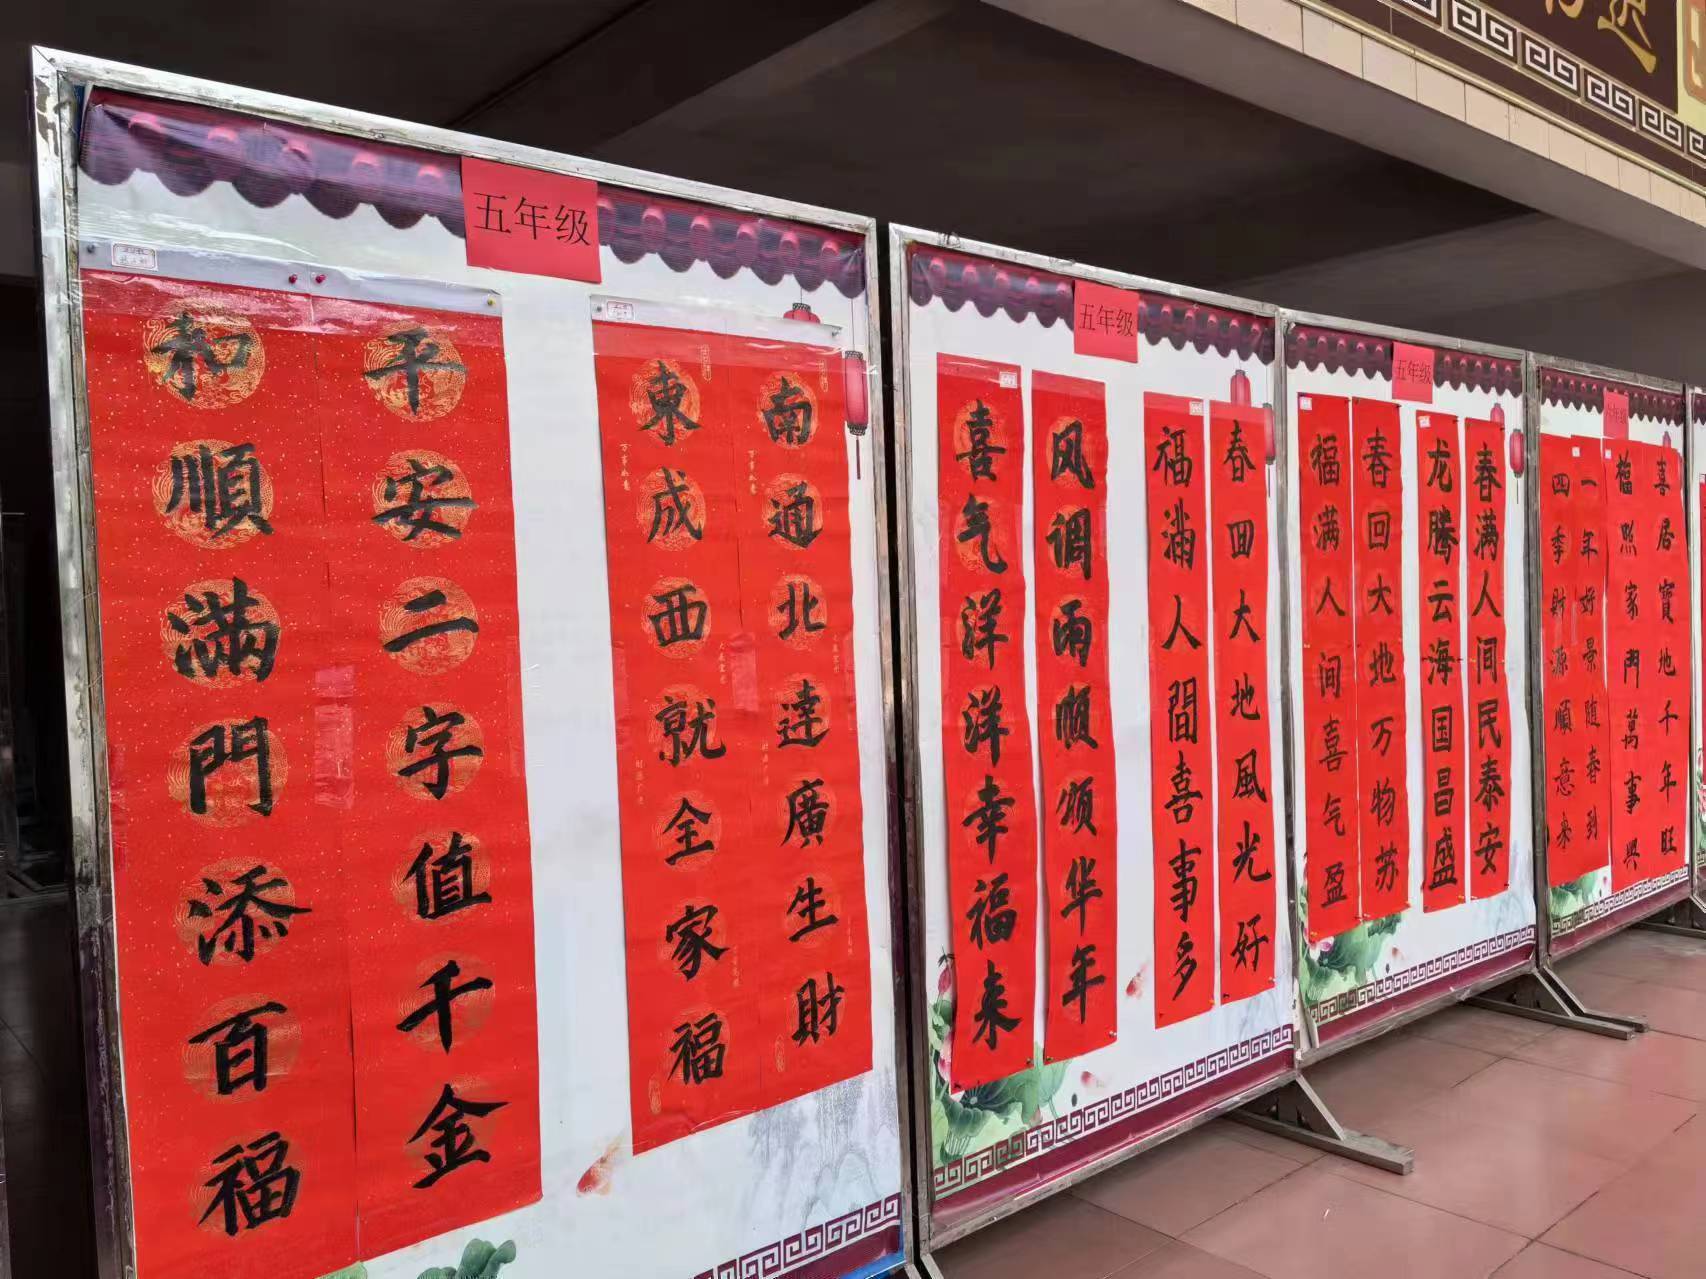 五年级
平安二字值千金
和順满門添百福
南通北達廣生財
東成西就全家福
五年级
风调雨顺颂华年
喜气洋洋幸福来
春回大地風光好
福满人間喜事多
五年级
春回大地万物苏
福满人间喜气盈
春满人间民泰安
龙腾云海国昌盛
一年好景随春到
四季財源順意来
喜居寶地千年旺
福照家門萬事興